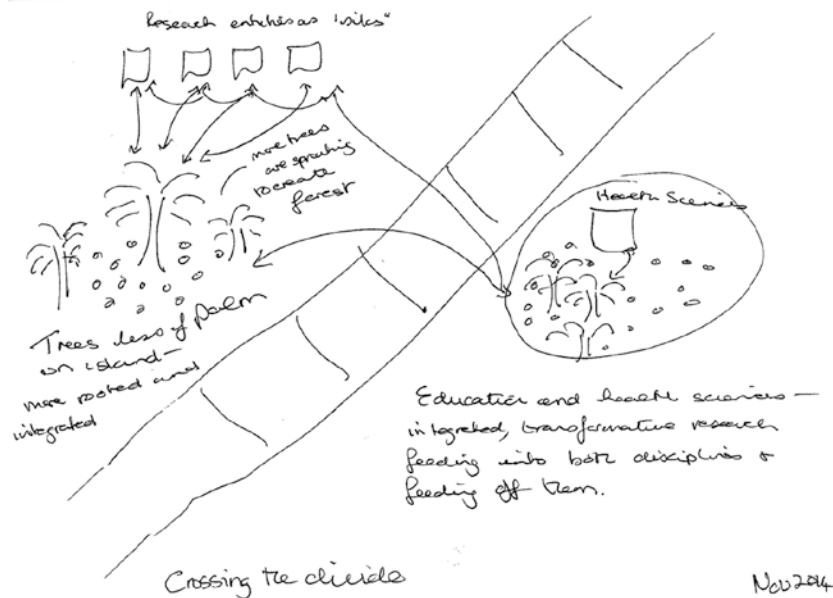 Research entities as "silos"
more trees
are sprouting
to create
forest
Health Sciences
Trees less of palm
on island—
more rooted and
integrated
Education and health sciences—
integrated, transformative research
feeding into both disciplines &
feeding off them.
Crossing the divide
Nov 2014